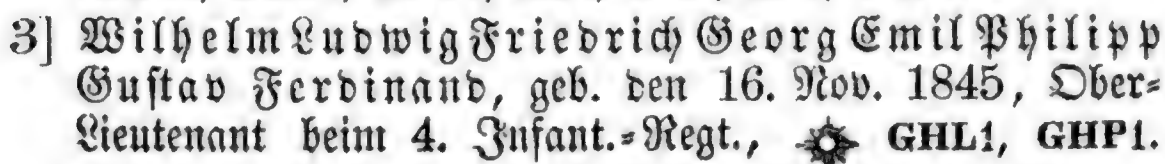 3] Wilhelm Ludwig Friedrich Georg Emil Philipp
Gustav Ferdinand, geb. den 16. Nov. 1845, Ober-
Lieutenant beim 4. Infant.-Regt., GHL1, GHP1.